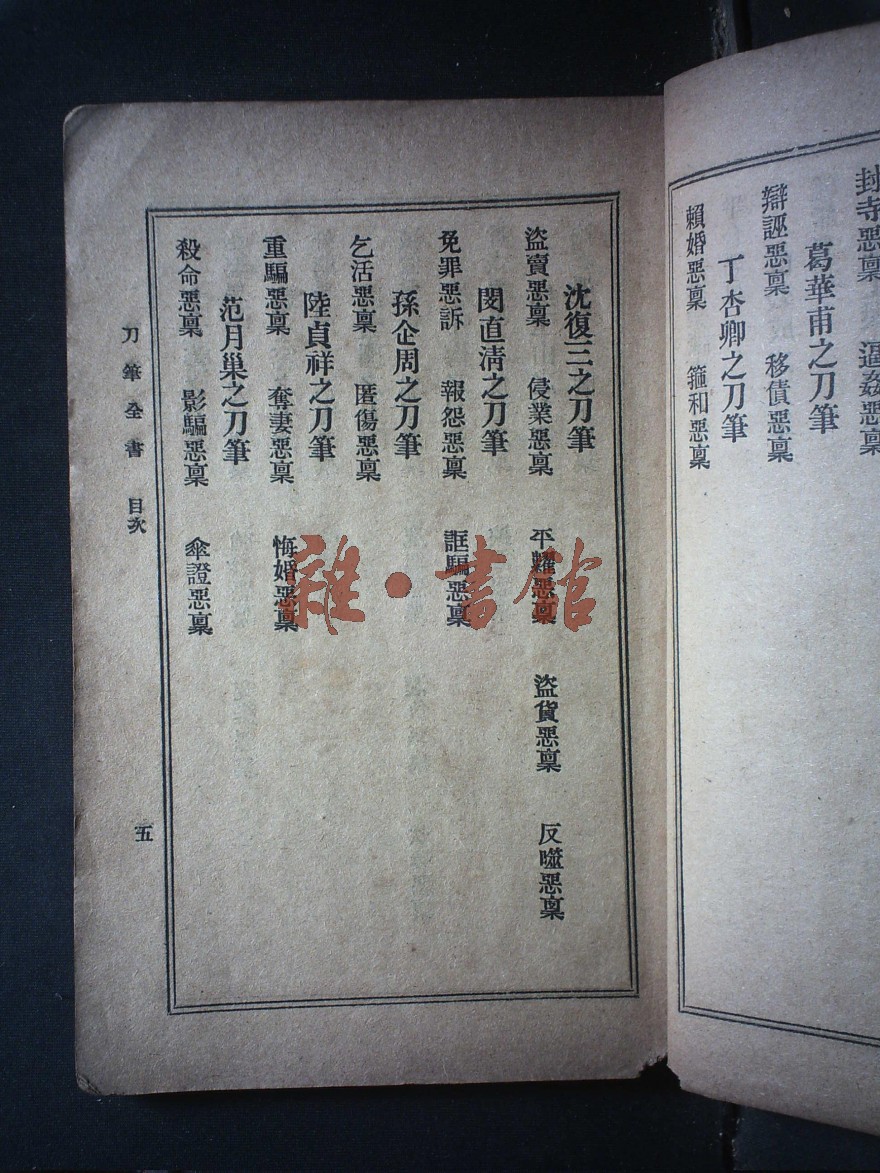 封寺惡稟 逼姦惡稟
葛華甫之刀筆
辯誣惡稟 移債惡稟
丁杏卿之刀筆
賴婚惡稟 箍和惡稟
沈復三之刀筆
盜賣惡稟 侵業惡稟 平糶惡稟 盜貨惡稟 反噬惡稟
閔直清之刀筆
免罪惡訴 報怨惡稟 誆騙惡稟
孫企周之刀筆
乞活惡稟 匿傷惡稟
陸貞祥之刀筆
重騙惡稟 奪妻惡稟 悔婚惡稟
范月巢之刀筆
殺命惡稟 影騙惡稟 傘證惡稟
刀筆全書 目次
五
雜·書館